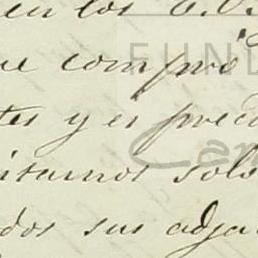 en los
e compró
tes y es prec
itamos solo
dos sus adja